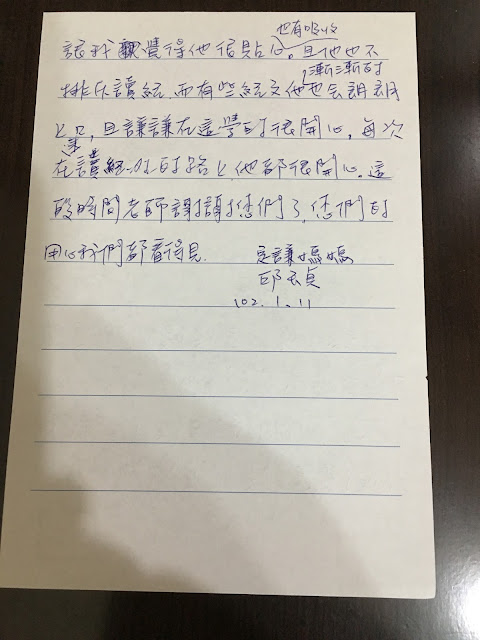 也有吸收
讓我覺得他很貼心。且他也不
漸漸的
排斥讀經,而有些經文他也會朗朗
上口,且謙謙在這學的很開心,每次
在讀經班的路上他都很開心。這
段時間老師謝謝您們了,您們的
用心我們都看得見.
謙媽媽
邱貞
102.1.11